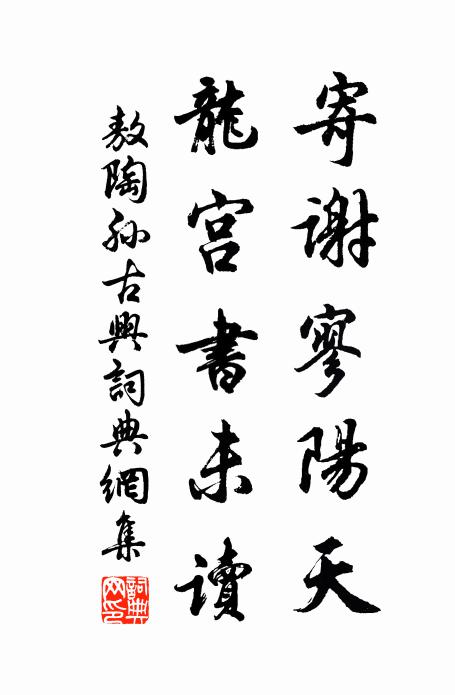 寄謝寥陽天
龍宮書未讀
敖陶孫古典詞典網集
詞典网印